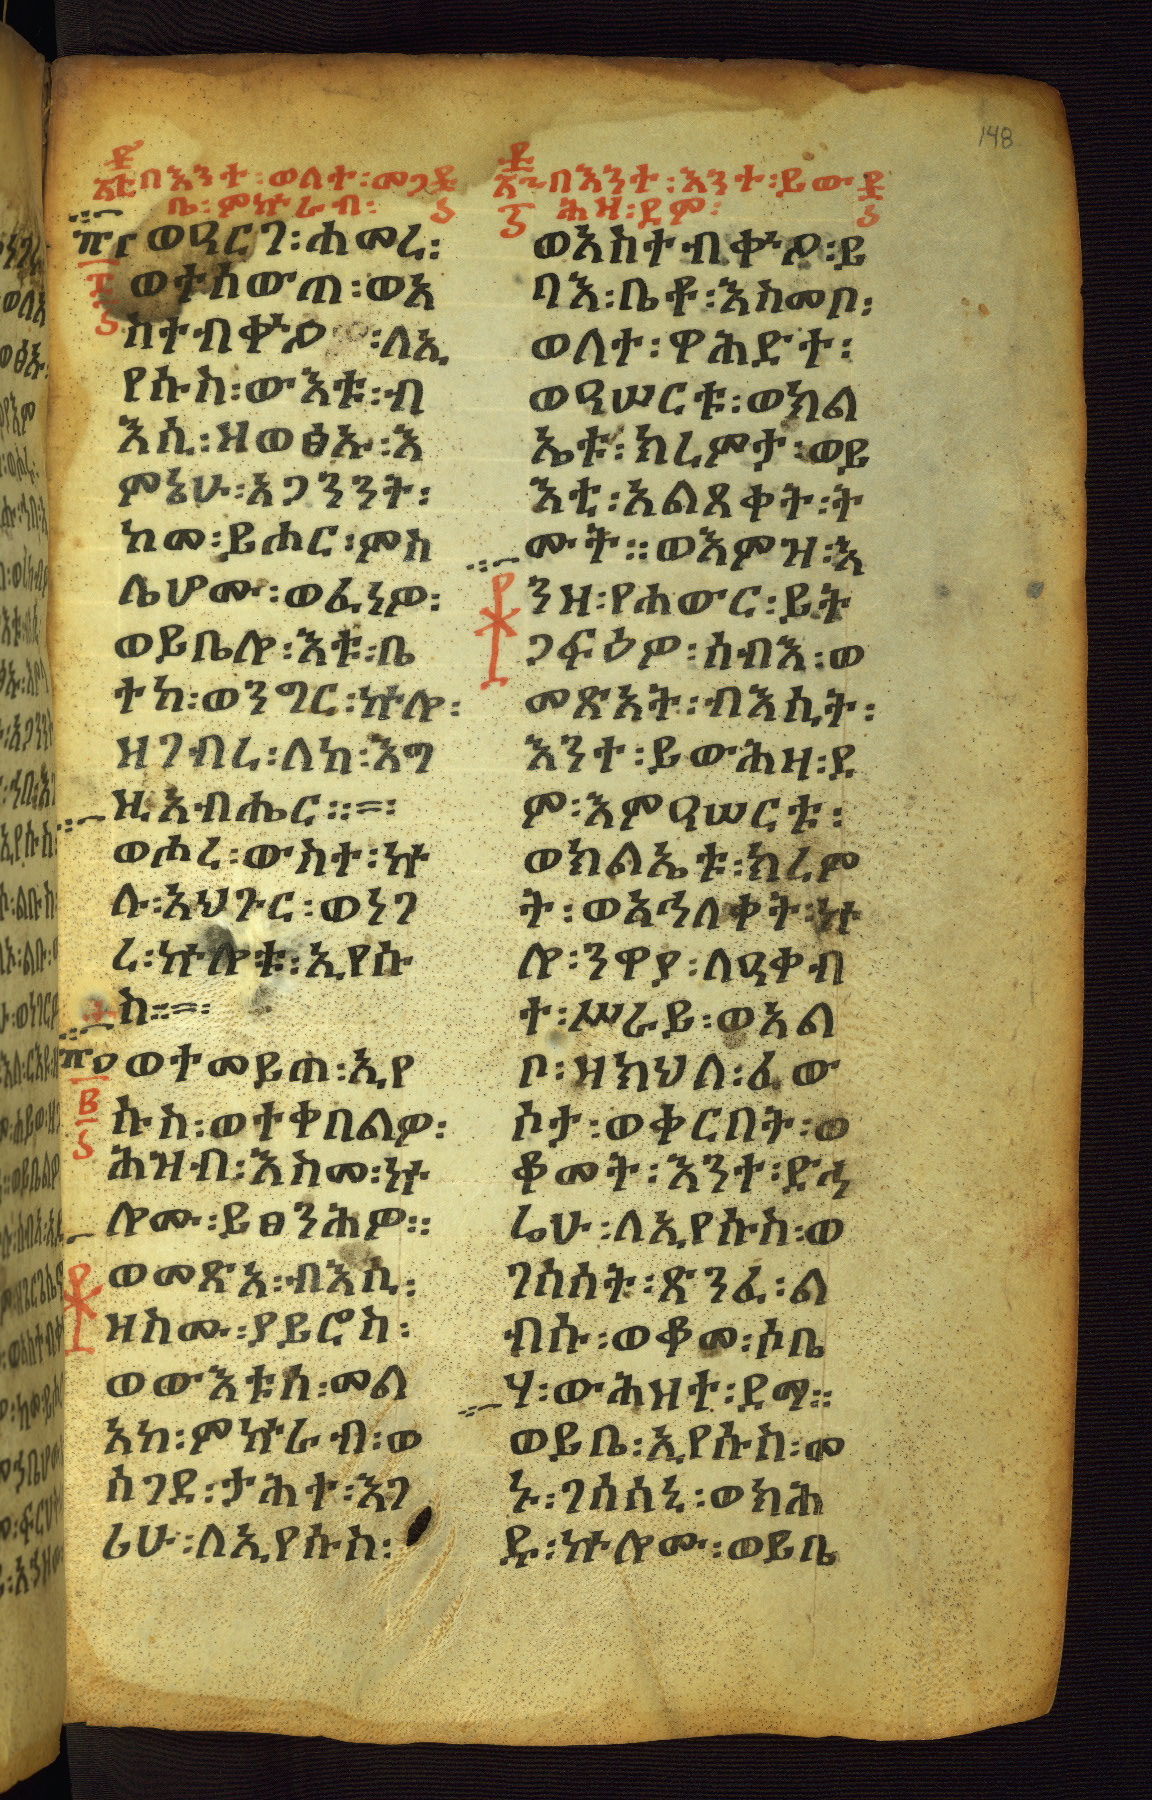 148
በእንተ፡ወለተ፡መጋ
ቤ፡ምኵራብ፡
ወዓርገ፡ሐመረ፡
ወተሰውጠ፡ወአ
ስተብቍዖ፡ለኢ
የሱስ፡ውእቱ፡ብ
እሲ፡ዘወፅኡ፡እ
ምኔሁ፡አጋንንት፡
ከመ፡ይሐር፡ምስ
ሌሆሙ፡ወፈነዎ፡
ወይቤሎ፡እቱ፡ቤ
ተከ፡ወንግር፡ኵሎ፡
ዘገብረ፡ለከ፡እግ
ዚአብሔር።=፡
ወሖረ፡ውስተ፡ኵ
ሉ፡አህጉር፡ወነገ
ረ፡ኵሎ፡ቱ፡ኢየሱ
ስ።=፡
ወተመይጠ፡ኢየ
ሱስ፡ወተቀበልዎ፡
ሕዝብ፡እስመ፡ኵ
ሎሙ፡ይፀንሕዎ።
ወመጽአ፡ብእሲ፡
ዘስሙ፡ያይሮስ፡
ወውእቱሰ፡መል
አከ፡ምኵራብ፡ወ
ሰገደ፡ታሕተ፡እገ
ሪሁ፡ለኢየሱስ፡
በእንተ፡እንተ፡ይውኅ
ሕዛ፡ደም፡
ወአስተብቍዖ፡ይ
ባእ፡ቤቶ፡እስመቦ፡
ወለተ፡ዋሕድተ፡
ወዓሠርቱ፡ወክል
ኤቱ፡ክረምታ፡ወይ
እቲ፡አልጸቀት፡ት
ሙት።ወእምዝ፡እ
ንዘ፡የሐውር፡ይት
ጋፍዕዎ፡ሰብእ፡ወ
መጽአት፡ብእሲት፡
እንተ፡ይውሕዛ፡ደ
ም፡እምዓሠርቱ፡
ወክልኤቱ፡ክረም
ት፡ወአኅለቀት፡ኵ
ሎ፡ንዋያ፡ለዓቀብ
ተ፡ሥራይ፡ወአል
ቦ፡ዘክህለ፡ፈው
ሶታ፡ወቀርበት፡ወ
ቆመት፡እንተ፡ድኅ
ሬሁ፡ለኢየሱስ፡ወ
ገሰሰት፡ጽንፈ፡ል
ብሱ፡ወቆመ፡ሶቤ
ሃ፡ውሕዘተ፡ደማ።
ወይቤ፡ኢየሱስ፡መ
ኑ፡ገሰሰኒ፡ወክሕ
ዱ፡ኵሎሙ፡ወይቤ